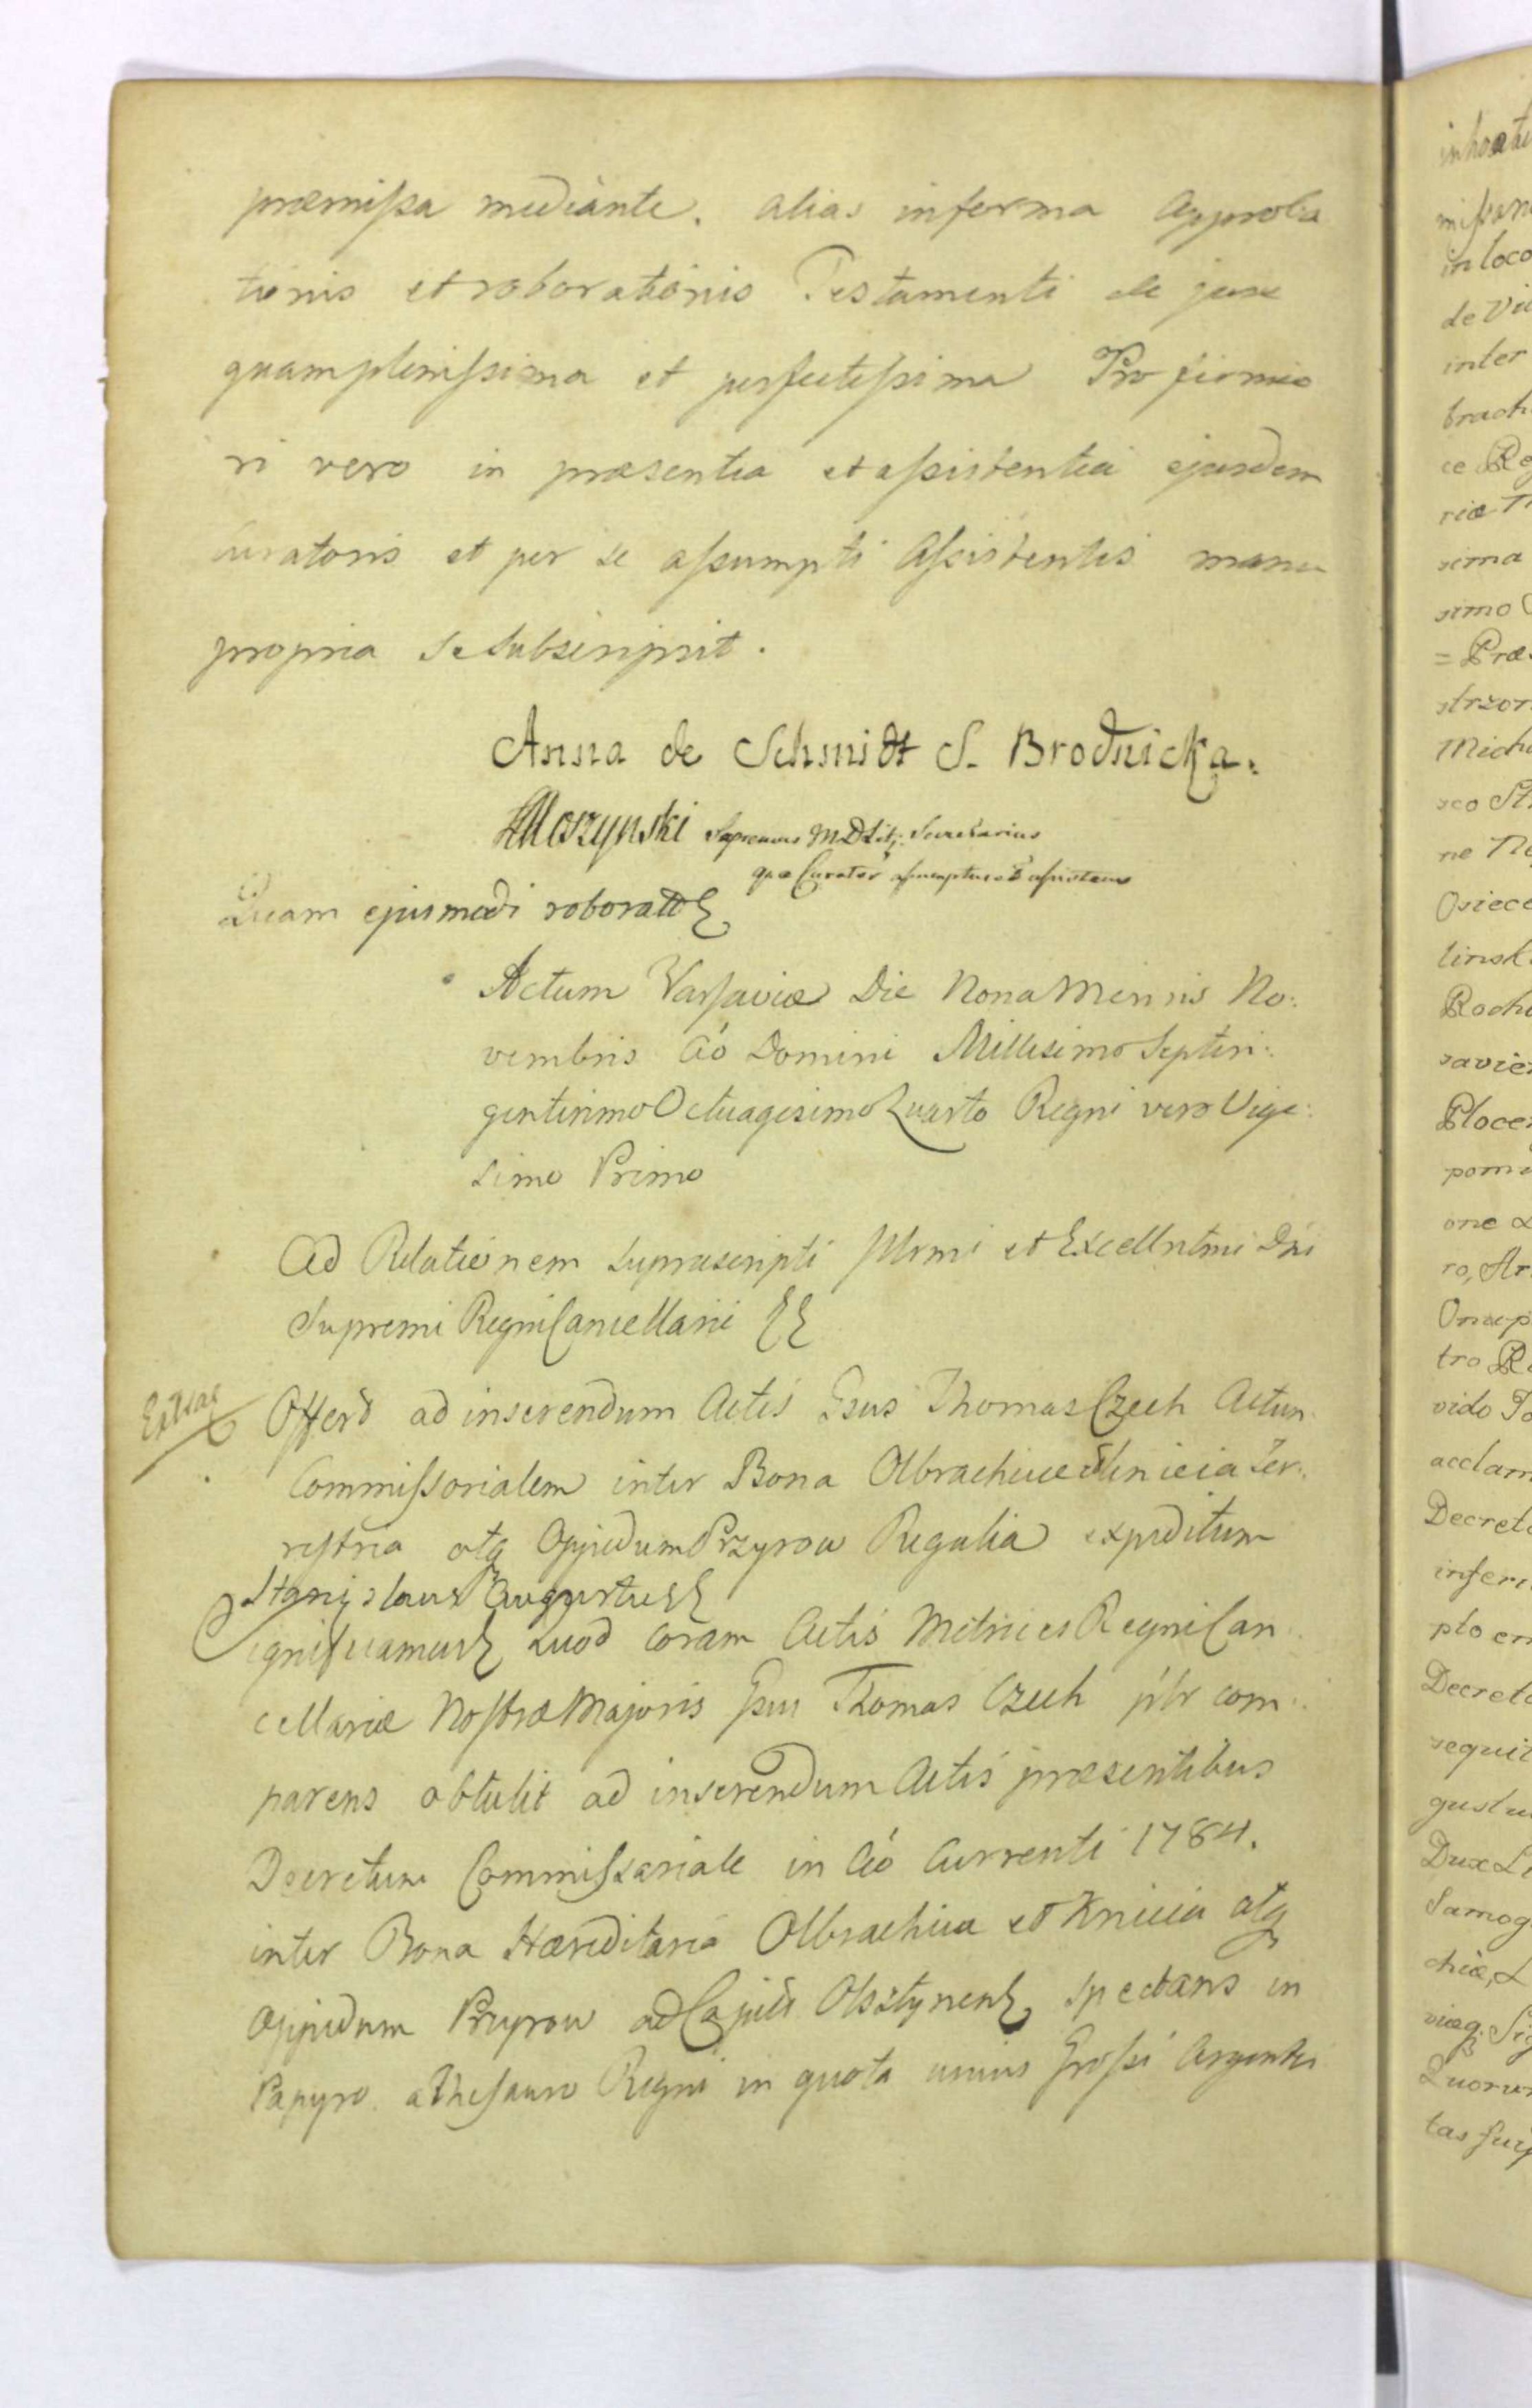 præmissa mediante. alias in forma Approba
tionis et roborationis Testamenti de jure
quamplenissima et perfectissima Pro firmio
ri vero in præsentia et assistentia ejusdem
curatoris et per se assumpti Assistentis manu
propria se subscripsit.
Anna de Schmidt S. Brodnicka.
Moszynski Supremus M D Lit: Secretarius
qua Curator assumptus et assistens
Quam ejusmodi roborat
Actum Varsaviæ Die Nona Mensis No:
vembris Ao Domini Millesimo Septin:
gentesimo Octuagesimo Quarto Regni vero Vige:
simo Primo
Ad Relationem suprascripti Illrmi et Excellntmi Dni
Supremi Regni Cancellarii
Offert ad inserendum Actis Gsus Thomas Czech Actum
Commissorialem inter Bona Olbrachcice Knieia Ter:
restria atq Oppidum Przyrow Regalia expeditum
Stanislaus Augustus
Significamus Quod coram Actis Metrices Regni Can:
cellariæ Nostræ Majoris Gsus Thomas Czech plr com:
parens obtulit ad inserendum Actis præsentibus
Decretum Commissariale in Ao Currenti 1784.
inter Bona Hæreditaria Olbrachcice et Knieia atq
Oppidum Przyrow ad Capit Olsztynen spectans in
Papyro a Thesauro Regni in quota unius Grossi Argentei
inhæ
missam
in loco
de Vi
inter
brach
ce Re
riæ
sima
simo
= Præ
strzon
Mich
sco St
ne
Osiec
linsk
Roch
savie
Ploce
pom
one
ro, Ar
Onup
tro
vido
acclam
Decret
inferi
pto en
Decret
sequit
gustu
Dux Li
Samog
chiæ,
viæq
Quoru
tas